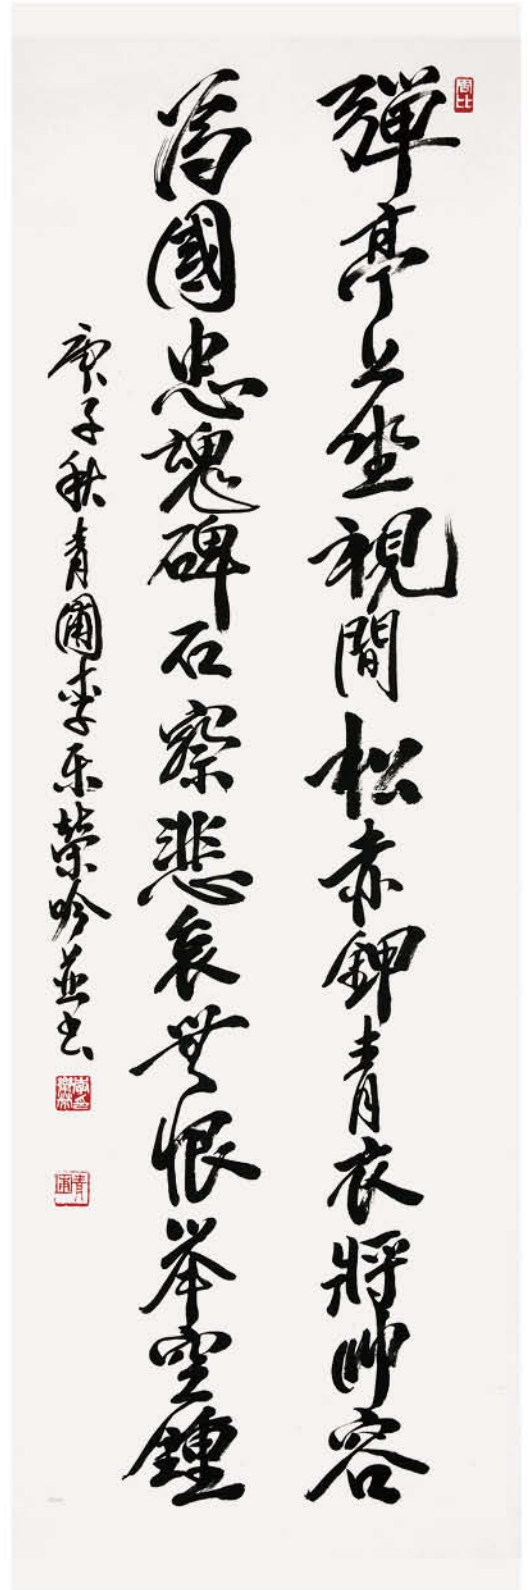 彈亭上坐視間松赤鉀青衣將帥容
為國忠魂碑石察悲哀無恨举空鍾
庚子秋青圃李乐榮吟並书
青圃